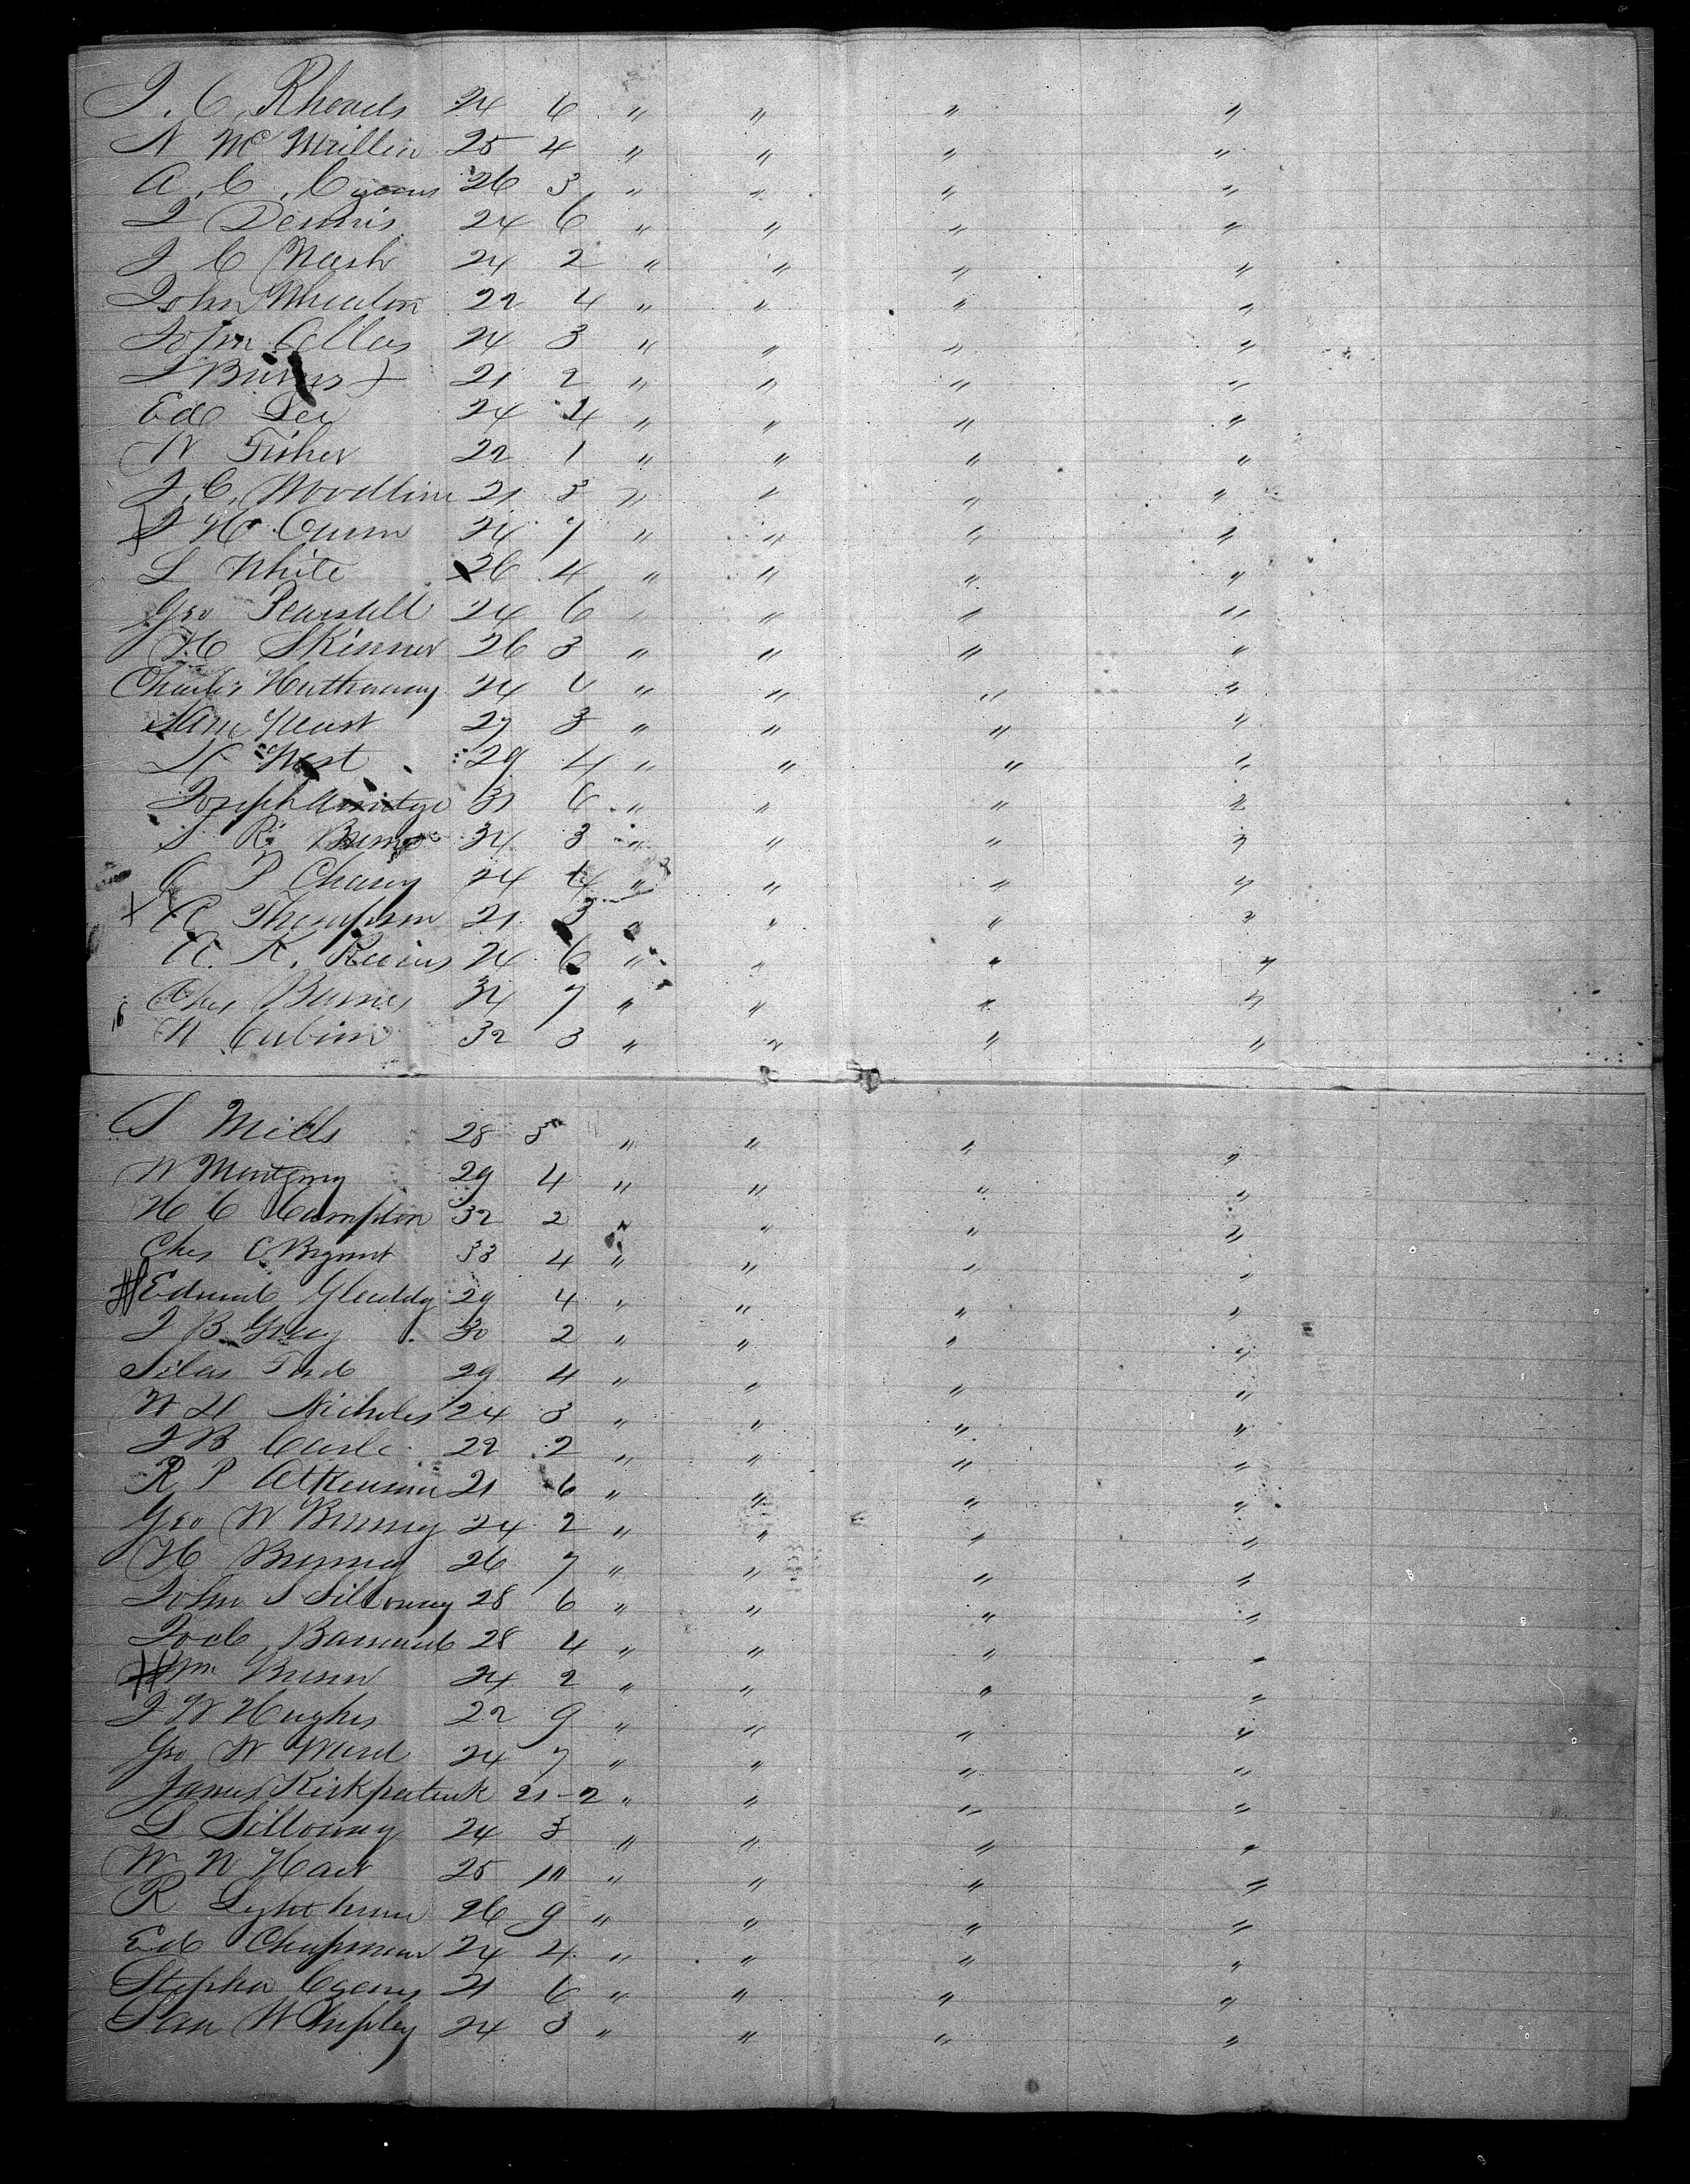 J. C. Rhoads 24 6 " " " "
N McMillin 25 4 " " " "
A. C. 26 3 " " " "
J Dennis 24 6 " " " "
J C Nash 24 2 " " " "
John Wheaton 22 4 " " " "
John 24 3 " " " "
J Burns + 21 2 " " " "
Ed Lee 24 4 " " " "
W Fisher 22 1 " " " "
J. C. Woodline 21 3 " " " "
J H 24 7 " " " "
L White 26 4 " " " "
Geo Pearsall 24 6 " " " "
H C Skinner 26 3 " " " "
Charles Hathaway 24 4 " " " "
Sam Yeast 27 3 " " " "
West 29 4 " " " "
Joseph 31 6 " " " "
S R. 34 3 " " " "
C P Chasey 24 4 " " " "
+ A Thompson 21 3 " " " "
A. K. 24 6 " " " "
Ches Burns 34 7 " " " "
W Cubin 32 3 " " " "
S Mills 28 3 " " " "
W Montgmy 29 4 " " " "
H C Hampton 32 2 " " " "
Ches C Bryant 33 4 " " " "
Edmund 29 4 " " " "
J B Gray 30 2 " " " "
Silas Ford 29 4 " " " "
W H Nicholes 24 3 " " " "
J B 22 2 " " " "
R P Atkenson 21 6 " " " "
Geo W 24 2 " " " "
H 26 7 " " " "
John S Silloway 28 6 " " " "
Barnard 28 4 " " " "
Wm 24 2 " " " "
J W Hughes 22 9 " " " "
Geo W Ward 24 7 " " " "
James Kirkpatrick 21 - 2 " " " "
L Silloway 24 3 " " " "
W W Hart 25 10 " " " "
R Lighthum 26 9 " " " "
Ed Chapman 24 4 " " " "
Stephen 21 6 " " " "
Sam W Shipley 24 3 " " " "